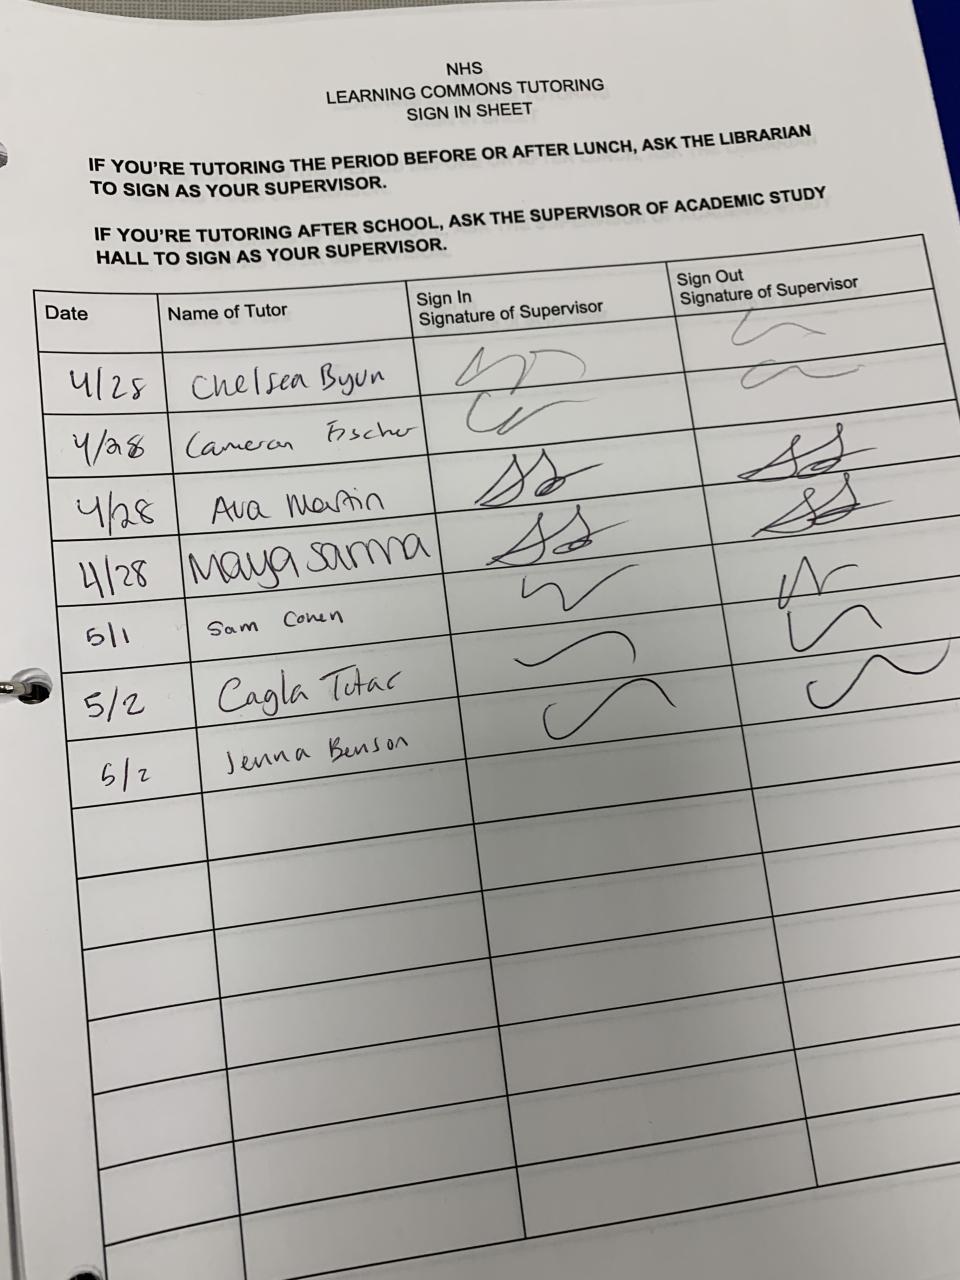 NHS
LEARNING COMMONS TUTORING
SIGN IN SHEET
IF YOU'RE TUTORING THE PERIOD BEFORE OR AFTER LUNCH, ASK THE LIBRARIAN
TO SIGN AS YOUR SUPERVISOR.
IF YOU'RE TUTORING AFTER SCHOOL, ASK THE SUPERVISOR OF ACADEMIC STUDY
HALL TO SIGN AS YOUR SUPERVISOR.
Date Name of Tutor Sign In Signature of Supervisor Sign Out Signature of Supervisor
4/28 Chelsea Byun
4/28 Cameran Fischer
4/28 Ava Martin
4/28 Maya Sarma
5/1 Sam Cohen
5/2 Cagla Tutac
5/2 Jenna Benson